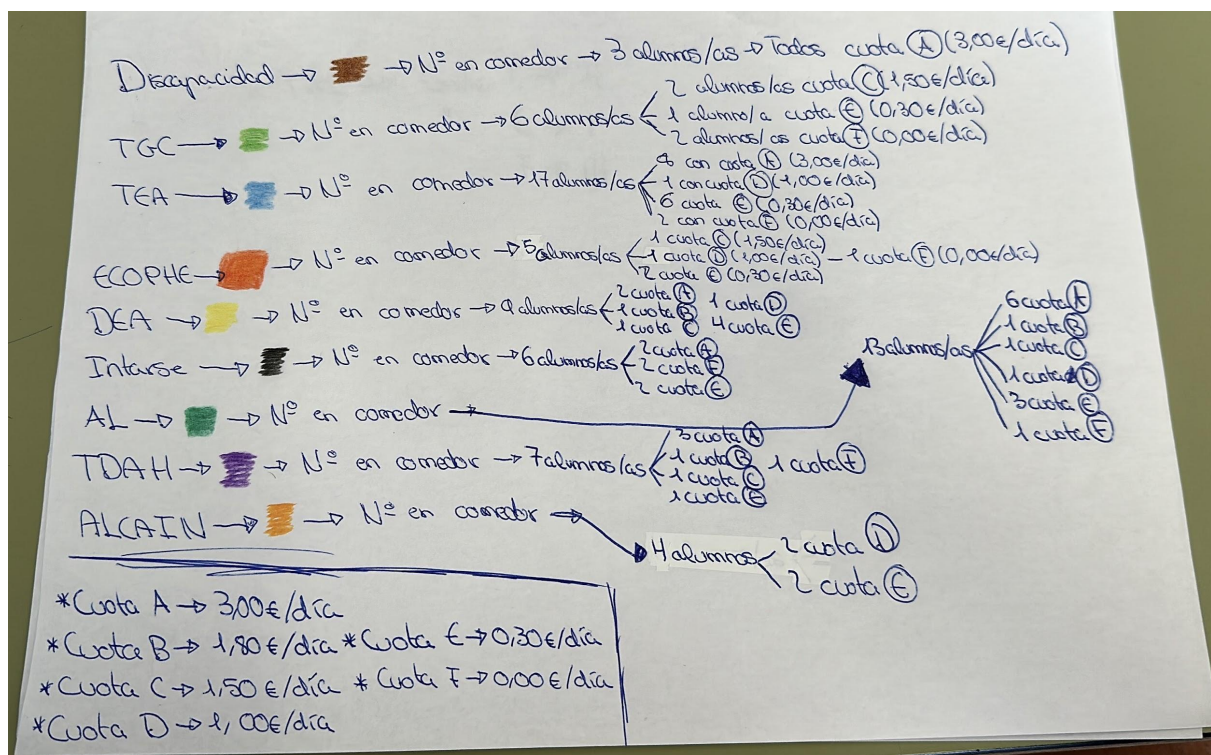 Discapacidad → → Nº en comedor → 3 alumnos/as → Todos cuota A (3,00€/día)
TGC → → Nº en comedor → 6 alumnos/as
2 alumnos/as cuota C (1,50€/día)
1 alumno/a cuota E (0,30€/día)
2 alumnos/as cuota F (0,00€/día)
TEA → → Nº en comedor → 17 alumnos/as
8 con cuota A (3,00€/día)
1 con cuota D (1,00€/día)
6 cuota E (0,30€/día)
2 con cuota F (0,00€/día)
ECOPHE → → Nº en comedor → 5 alumnos/as
1 cuota C (1,50€/día)
1 cuota D (1,00€/día) - 1 cuota F (0,00€/día)
2 cuota E (0,30€/día)
DEA → → Nº en comedor → 9 alumnos/as
2 cuota A 1 cuota D
1 cuota B
1 cuota C 4 cuota E
Intarse → → Nº en comedor → 6 alumnos/as
2 cuota A
2 cuota F
2 cuota E
AL → → Nº en comedor →
13 alumnos/as
6 cuota A
1 cuota B
1 cuota C
1 cuota D
3 cuota E
1 cuota F
TDAH → → Nº en comedor → 7 alumnos/as
3 cuota A
1 cuota B 1 cuota F
1 cuota C
1 cuota E
ALCAIN → → Nº en comedor →
4 alumnos
2 cuota D
2 cuota E
*Cuota A → 3,00€/día
*Cuota B → 1,80€/día *Cuota E → 0,30€/día
*Cuota C → 1,50€/día *Cuota F → 0,00€/día
*Cuota D → 1,00€/día